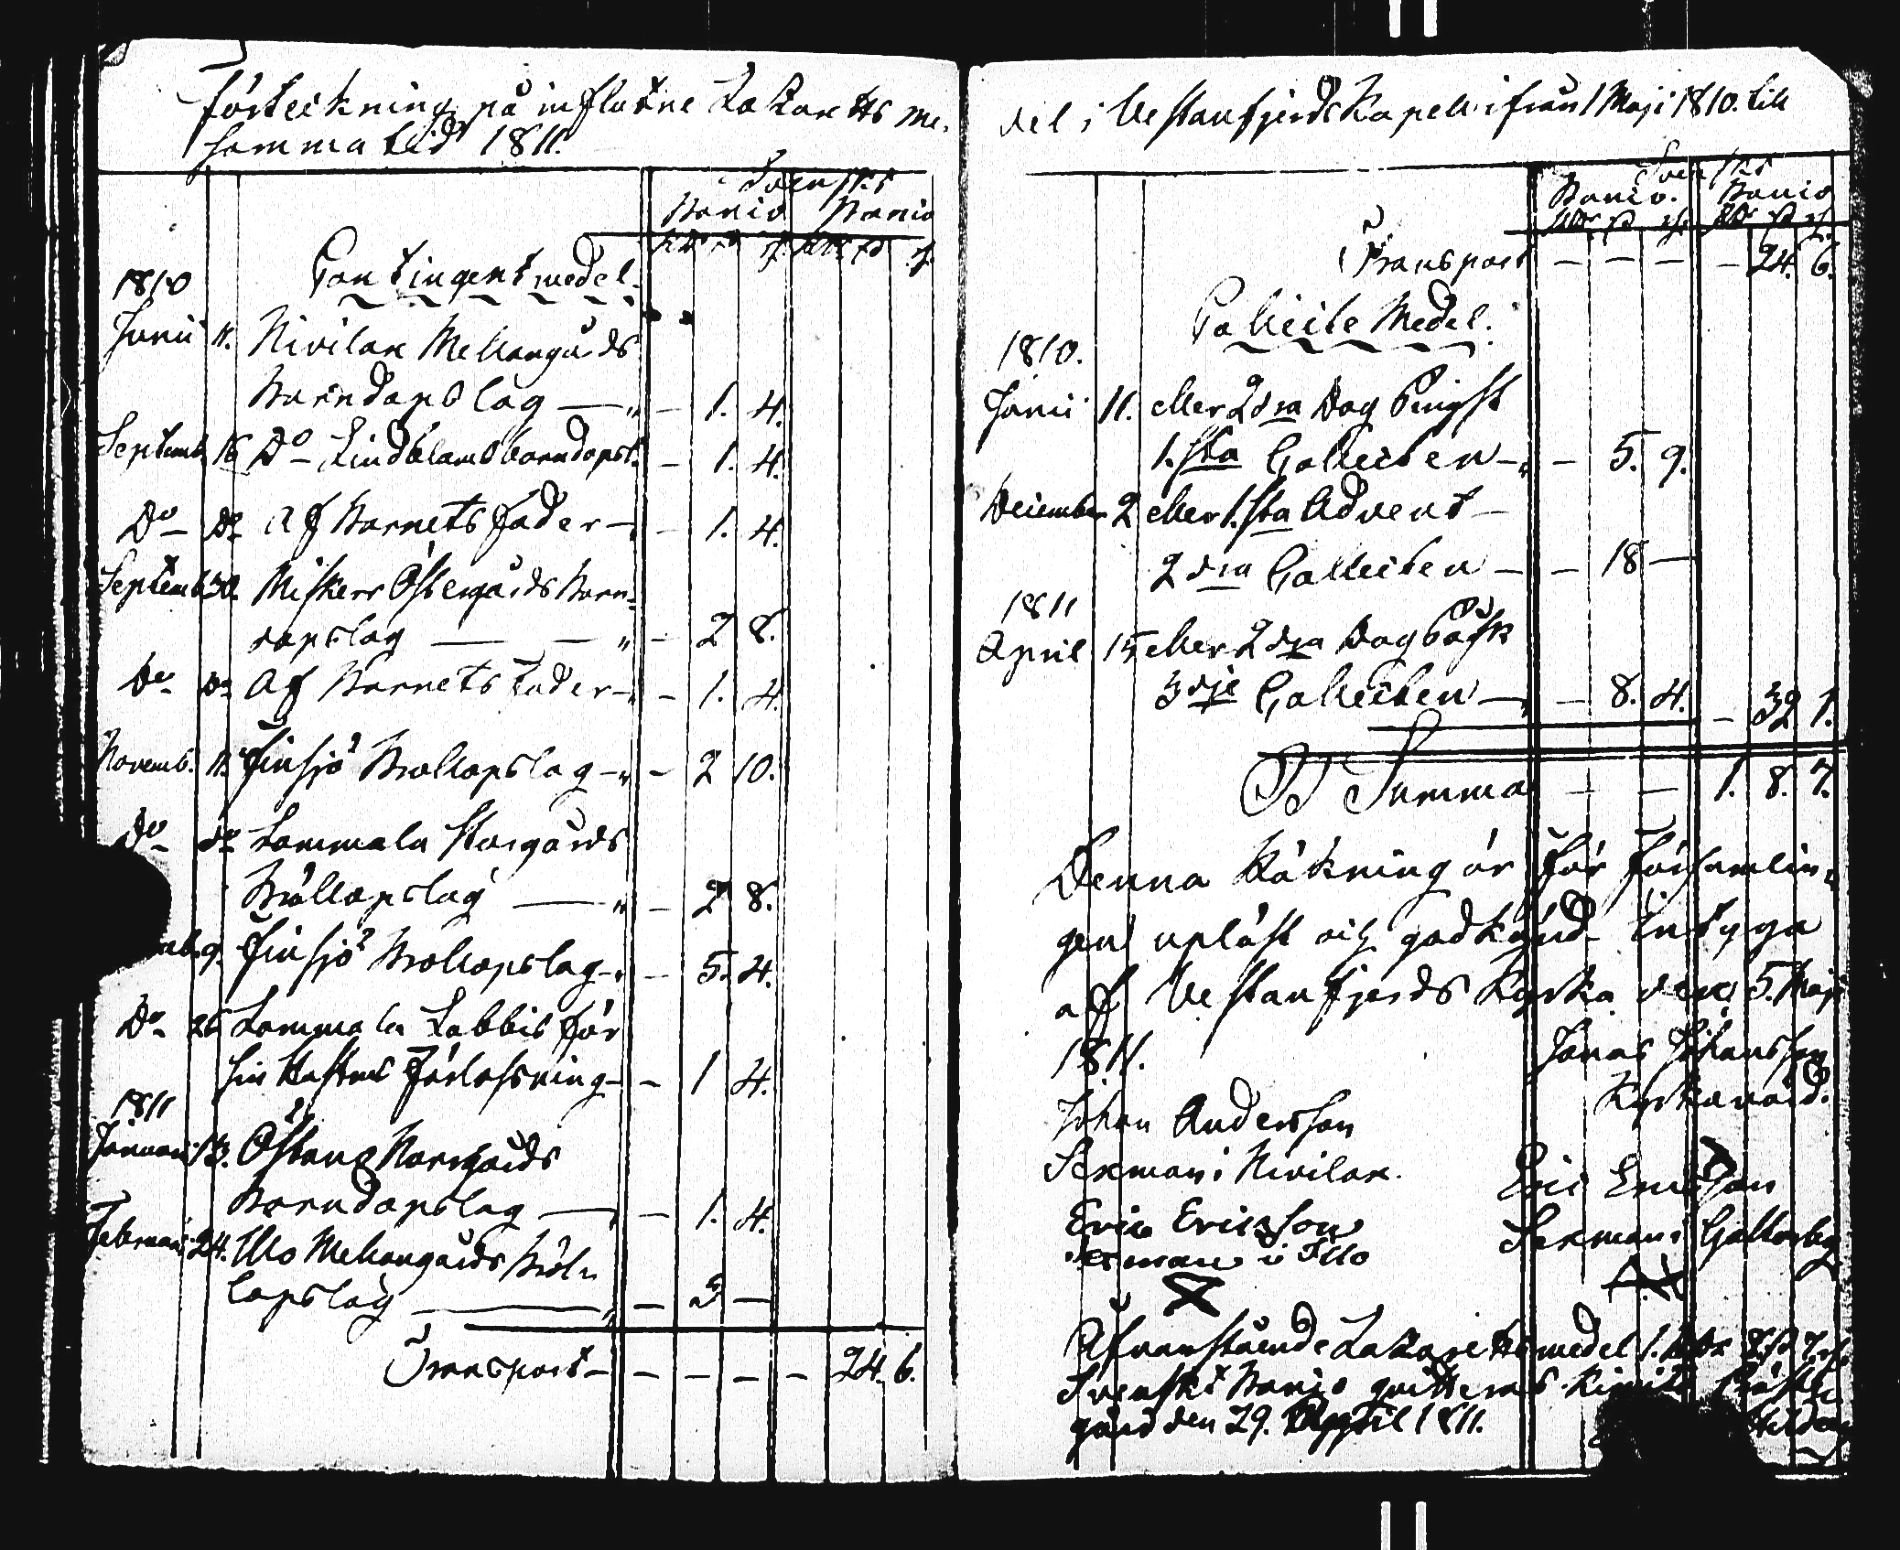 Förteckning på influtne Lazaretts me-
samma tid 1811.
Svenskt
Banco Banco
Contingent medel.
1810
Junii 11. Nivilax Mellangårds
Barndopslag — „ — 1. 4.
Septemb. 16 Do Lindblams barndopsl. — 1. 4.
Do Do Af Barnets fader — 1. 4.
Septemb 30. Miskers Östergårds Barn-
dopslag — — „ — 2 8.
Do Do Af Barnets Fader — — 1. 4.
Novemb. 11. Finsjö Bröllopslag — „ — 2 10.
Do Do Lammala Storgårds
Bröllopslag — „ — 2 8.
9. Finsjö Bröllopslag — „ — 5. 4.
Do 26 Lammala Labbis för
sin Hustrus Förlossning — — 1 4.
1811
Januari 13. Östanå Norrgårds
Barndopslag — — 1. 4.
Februari 24. Illo Mellangårds Bröl-
lopslag — „ — 3 —
Transport — — — — — 24. 6.
del i Vestanfjerds Kapell ifrån 1 Maji 1810. till
Svenskt
Banco. Banco
Transport — — — — 24. 6.
Collecte Medel.
1810.
Junii 11. eller 2dra Dag Pingst
1.sta Collecten — „ — 5. 9.
December 2 eller 1.sta Advent —
2dra Collecten — — 18 —
1811
April 15 eller 2dra Dag Påsk
3dje Collecten — „ — 8. 4. — 32 1.
Summa — — 1. 8. 7.
Denna Räkning är för Församlin-
gen upläst och godkänd. Intyga
af Vestanfjerds Kyrka den 5. Maji
1811.
Jonas Johansson
Kyrkovärd.
Johan Andersson
Sexman i Nivilax.
Eric Ericsson
Sexman i Galtarby
Eric Ericsson
Sexman i Illo
Ofvanstående Lazaretts medel 1. Rdr 8 s 7 rs
Svenskt Banco qvitteras. Kimito Präste-
gård den 29. April 1811.